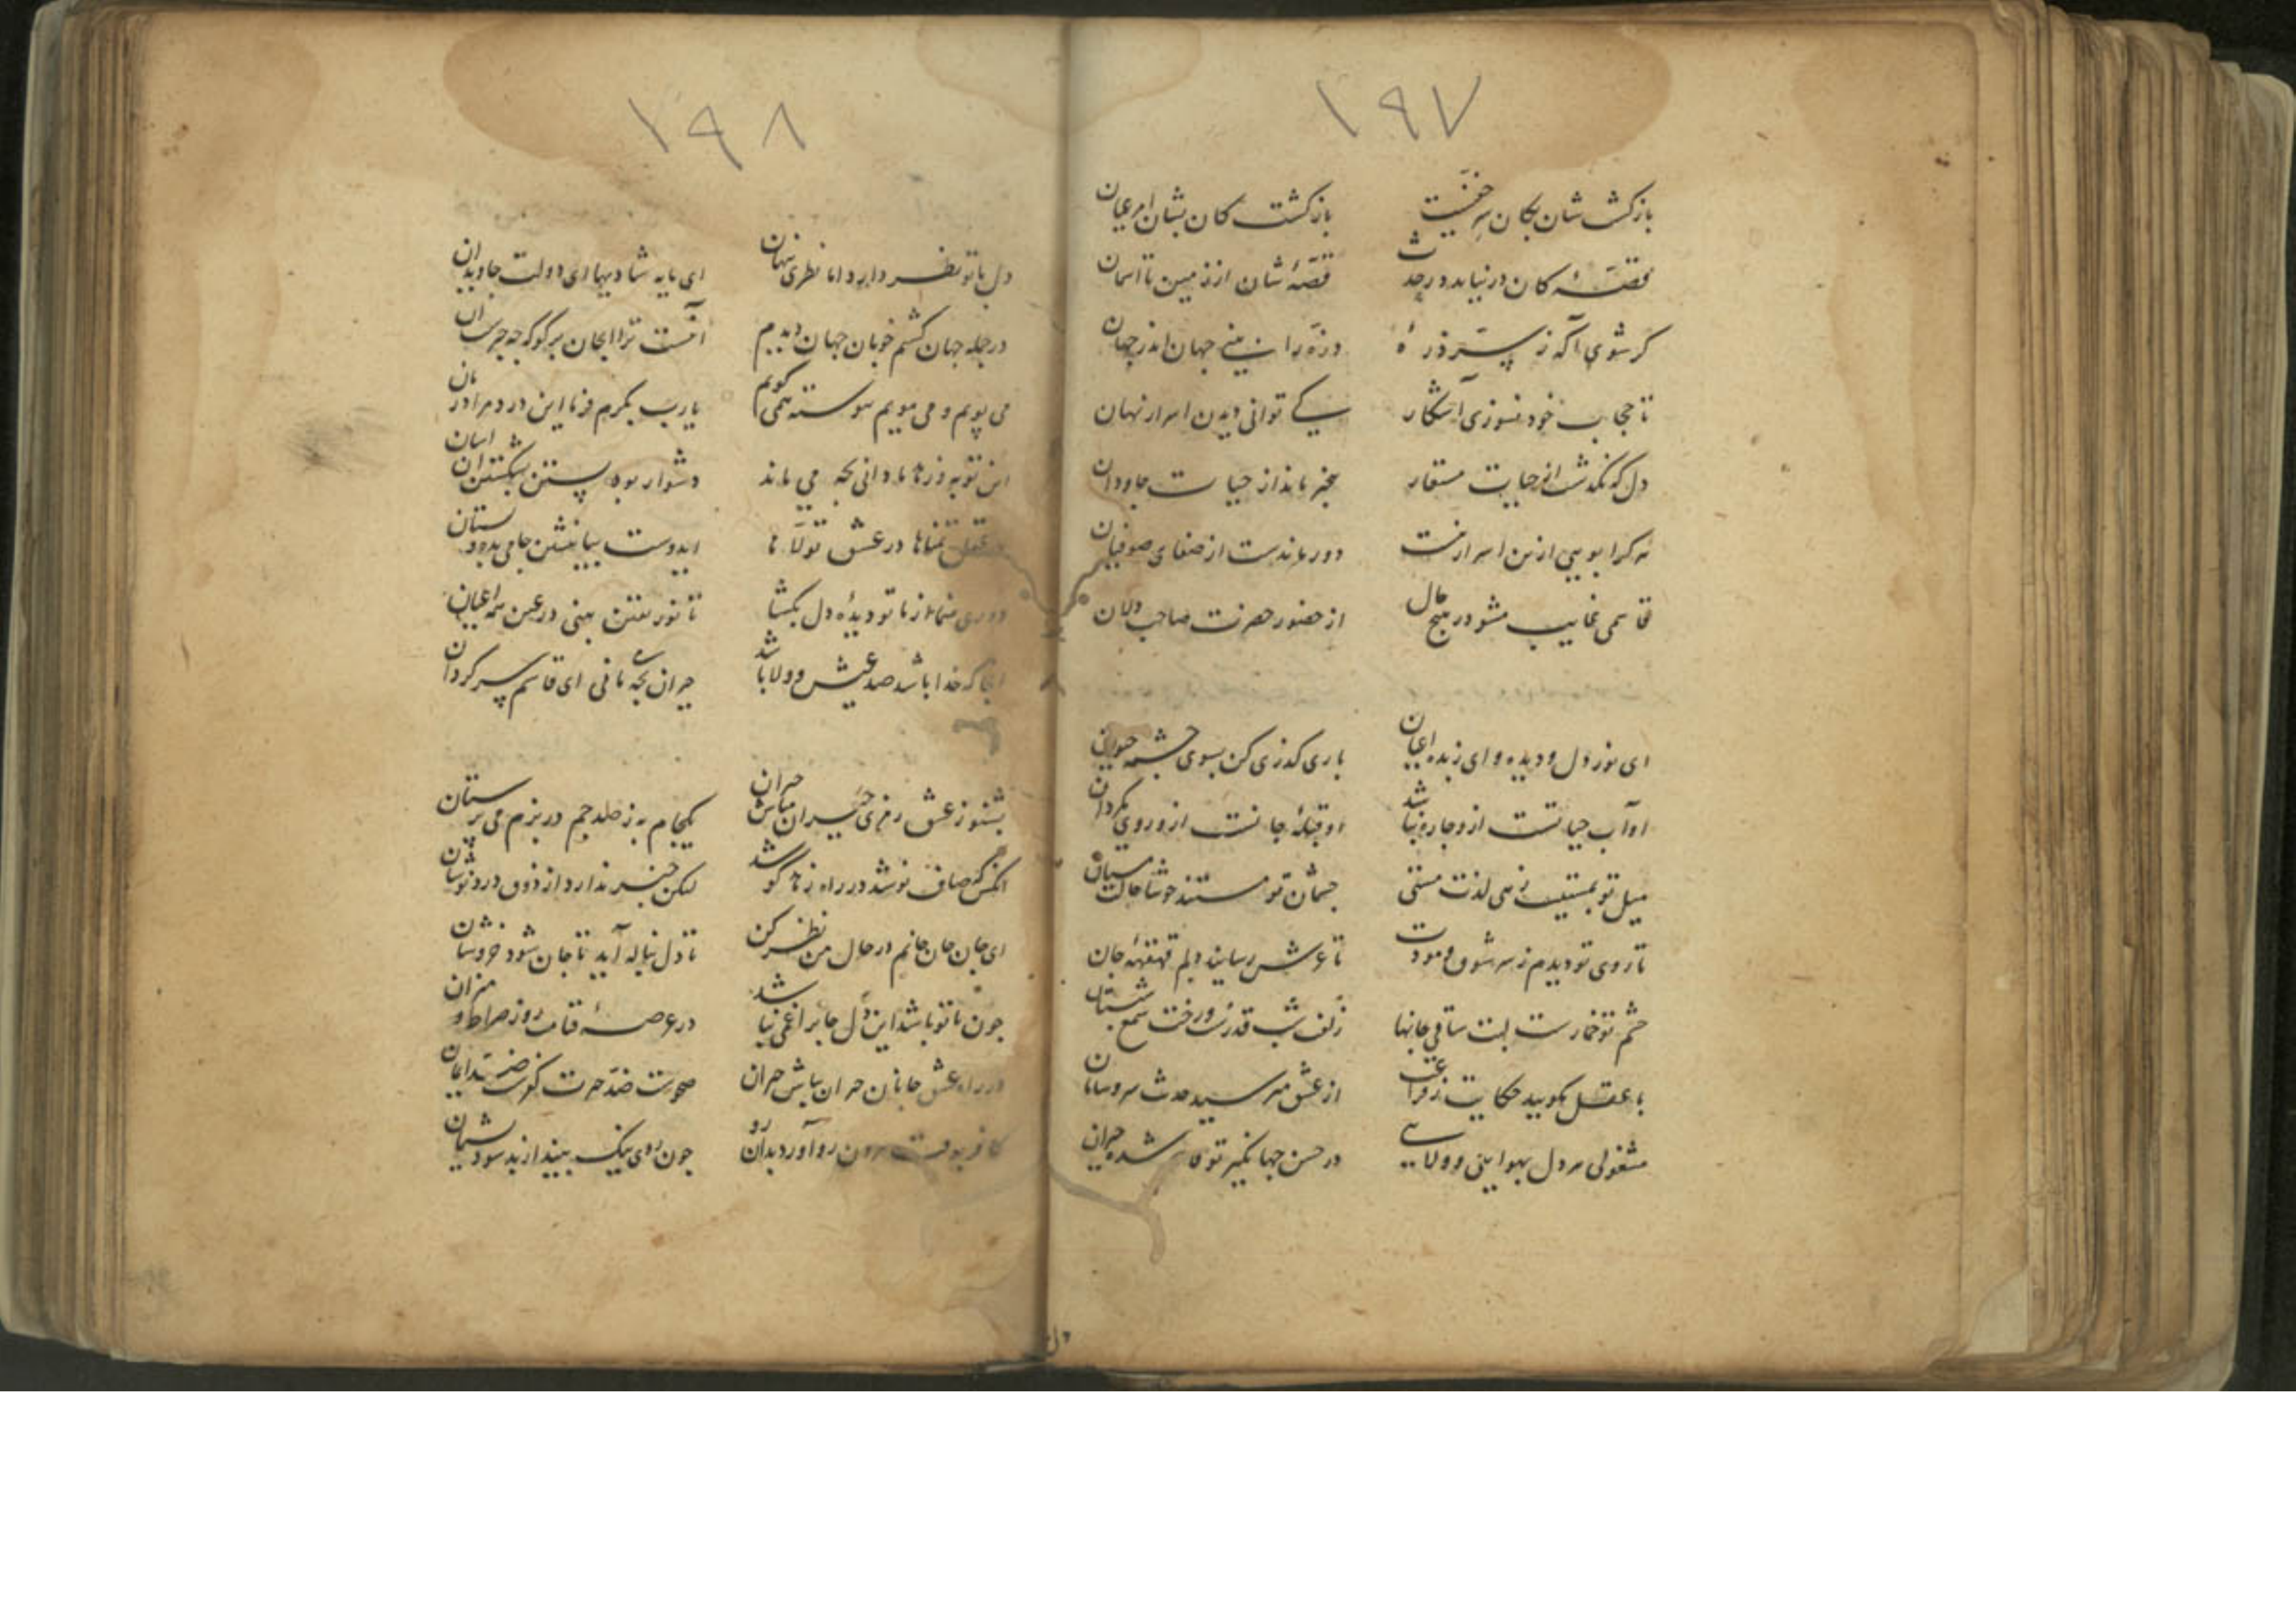 ۱۹۷
بازکشت شان بکان سر خفیست بازکشت کان بشان امر عیان
قصهٔ کان در نیاید در حدیث قصهٔ شان از زمین تا آسمان
کر شوی آکه ز سر ذرهٔ ذره را بینی جهان اندر جهان
تا حجاب خود نسوزی آشکار کی توانی دیدن اسرار نهان
دل که نکذشت از حیات مستعار بیخبر ماند از حیات جاودان
هر کرا بویی ازین اسرار نیست دور ماندست از صفای صوفیان
قاسمی غایب مشو در هیچ حال از حضور حضرت صاحب دلان
ای نور دل و دیده و ای زبده اعیان باری کذری کن بسوی چشمه حیوان
او آب حیاتست ازو چاره نباشد او قبلهٔ جانست ازو روی مکردان
میل تو بمستیست زهی لذت مستی چشمان تو مستند خوشا حالت مستان
تا روی تو دیدم ز سر شوق و مودت تا عرش رسانید دلم قهقههٔ جان
چشم تو خمارست لبت ساقی جانها زلفت شب قدرست و رخت شمع شبستان
با عقل بکویید حکایت ز فراغت از عشق مپرسید حدیث سر و سامان
مشغولی هر دل بهوایی و ولایی در حسن جهانکیر تو قاسم شده حیران
۱۹۸
دل با تو نظر دارد اما نظری پنهان ای مایه شادیها ای دولت جاویدان
در جمله جهان کشتم خوبان جهان دیدم آنست ترا ای جان برکو که چه چیزست آن
می پویم و می مویم پیوسته همی کویم یا رب بکرم فرما این درد مرا درمان
این توبه و زنار ما دانی بچه می ماند دشوار بود بستن بشکستن آن آسان
در عقل تمناها در عشق تولا ها ایدوست بیا بنشین جامی بده و بستان
دوری منما از ما تو دیدهٔ دل بکشا تا نور یقین بینی در عین همه اعیان
آنجا که خدا باشد صد عیش و ولا باشد حیران بچه مانی ای قاسم سرکردان
بشنو ز عشق رمزی حیران مباش حیران یکجام به ز صد جم در بزم می پرستان
آنکس که صاف نوشد در راه زهد کوشد لیکن خبر ندارد از ذوق درد نوشان
ای جان جان جانم در حال من نظر کن تا دل بناله آید تا جان شود خروشان
چون با تو باشد این دل جانرا غمی نباشد در عرصهٔ قیامت روز صراط و میزان
در راه عشق جانان حیران مباش حیران صحوست ضد حیرت کفرست ضد ایمان
کافر بوقت مردن رو آورد بدان رو چون روی نیک بیند از بد شود پشیمان